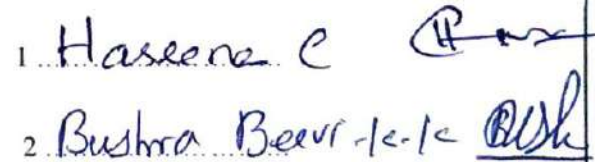 1 Haseena C
2 Bushra Beevi .k.k